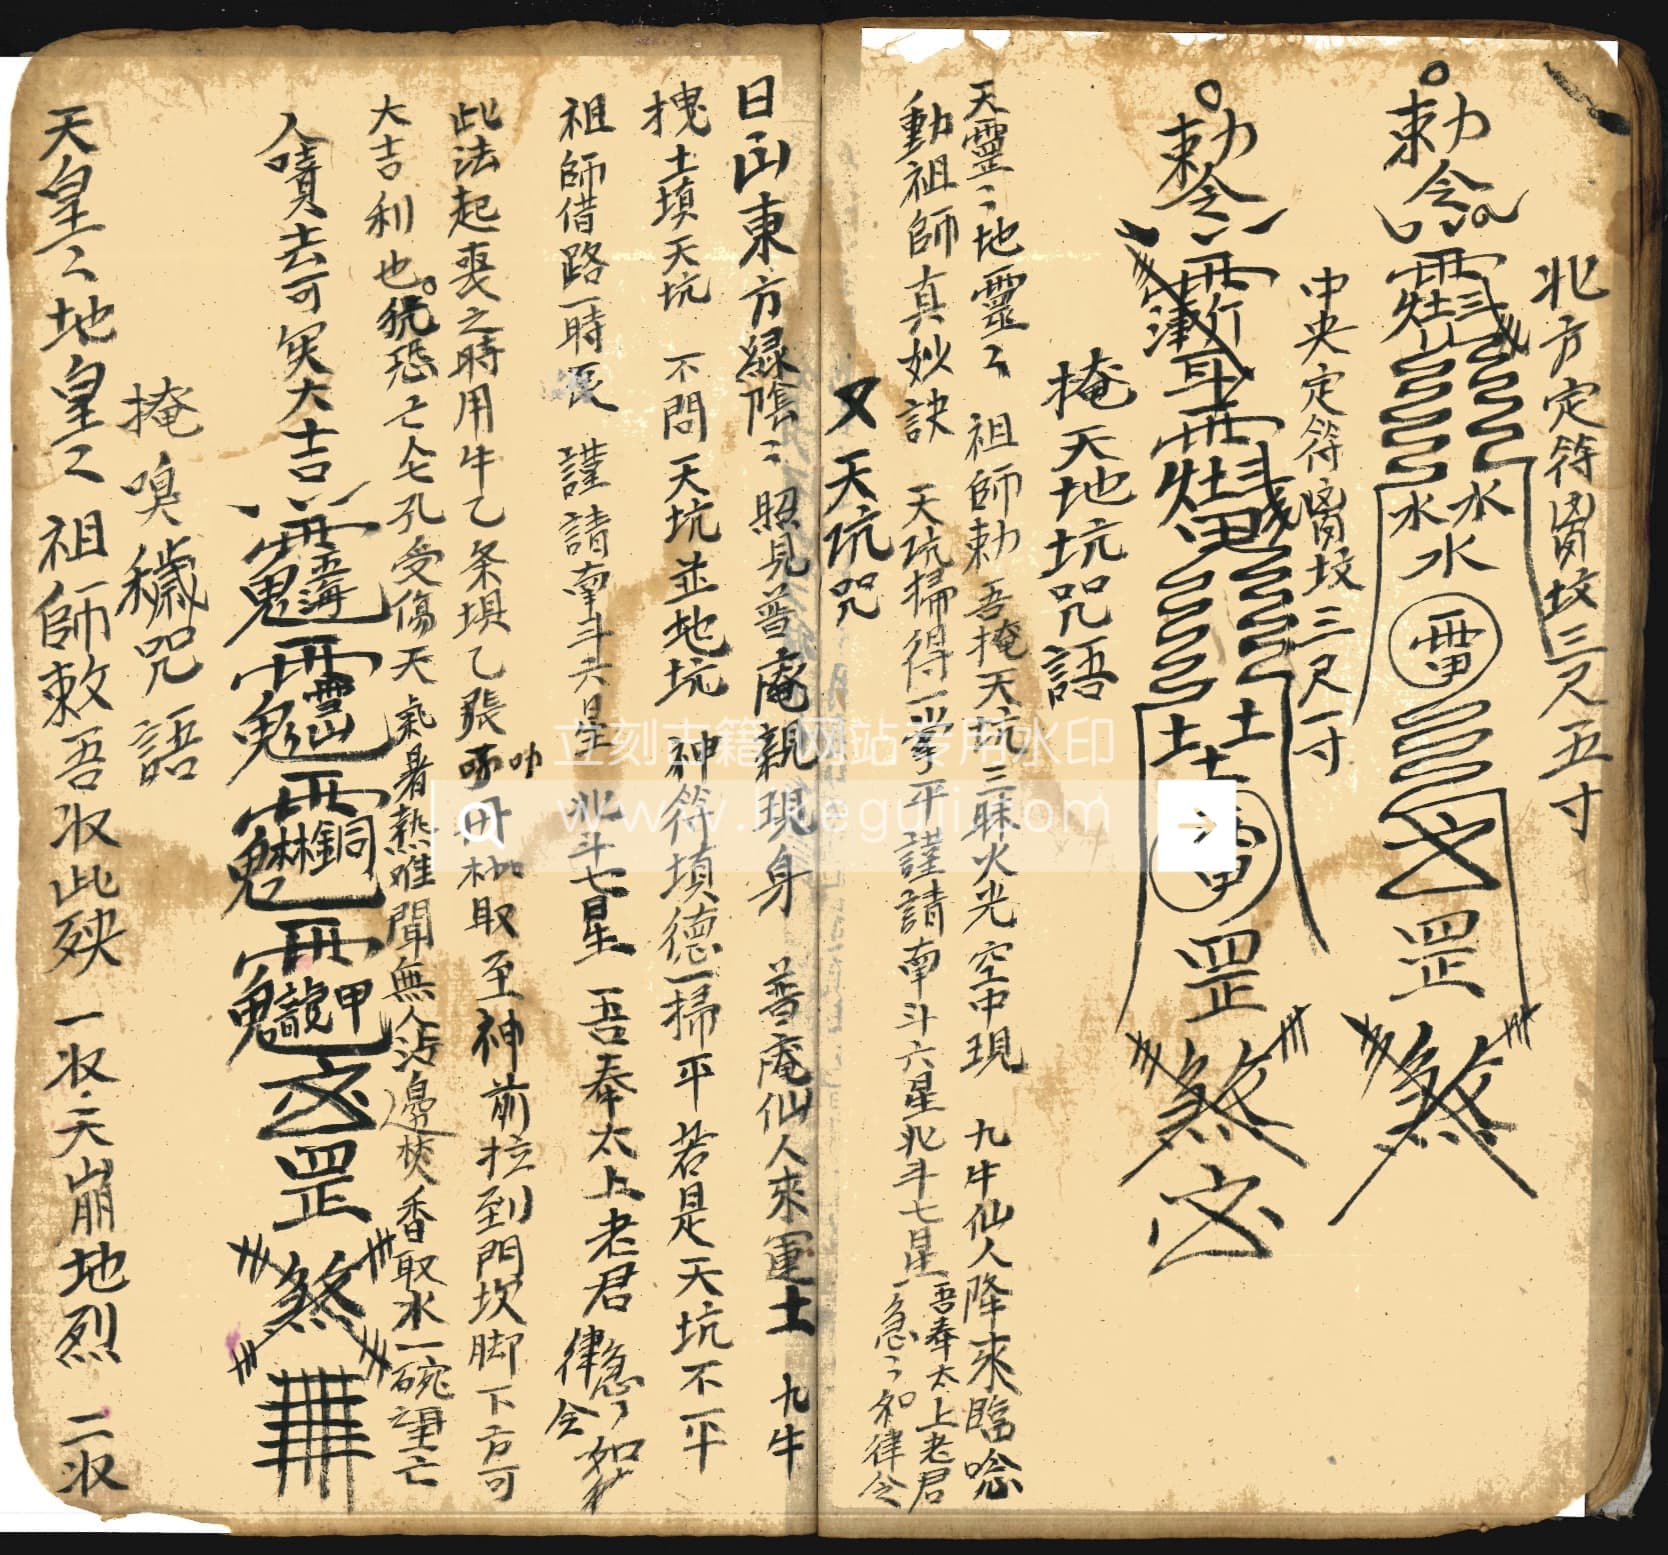 北方定符萬坟三尺五寸
勅令
水水水
雷
罡煞
中央定符萬坟三尺一寸
勅令
土土土
雷
罡煞
掩天地坑咒語
天靈〻地靈〻 祖師勅吾掩天坑 三昧火光空中現 九牛仙人降來臨唸
動祖師真妙訣 天坑掃得一掌平 謹請南斗六星北斗七星 吾奉太上老君急〻如律令
又天坑咒
日出東方綠陰〻 照見普庵親現身 普庵仙人來運土 九牛
拽土填天坑 不問天坑並地坑 神符填德一掃平 若是天坑不平
祖師借路一時辰 謹請南斗六星 北斗七星 吾奉太上老君急〻如律令
此法起喪之時用牛乙条 乙張 取至神前拉到門坎脚下方可
大吉利也。犹恐亡 七孔受傷 天氣暑熱难聞 無人沾邊 焚香取水一碗 望亡
人噴去可 大吉
罡煞
掩嗅穢咒語
天皇〻地皇〻 祖師敕吾收此殃 一收天崩地烈 二收
立刻古籍 网站专用水印